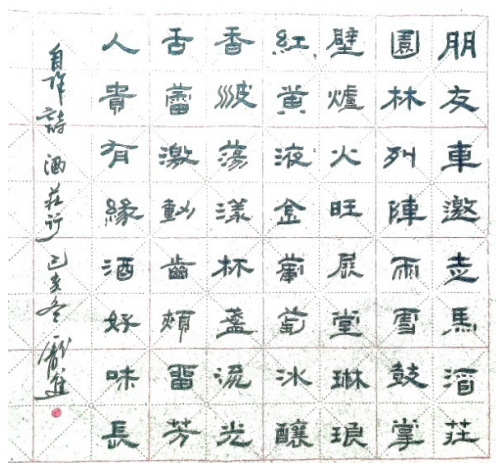 朋友車邀走馬酒莊
園林列陣雨雪鼓掌
壁爐火旺展堂琳琅
紅黃液金葡萄冰釀
香波蕩漾杯盞流光
舌蕾激動齒頰留芳
人貴有緣酒好味長
自作詩酒莊行己亥冬